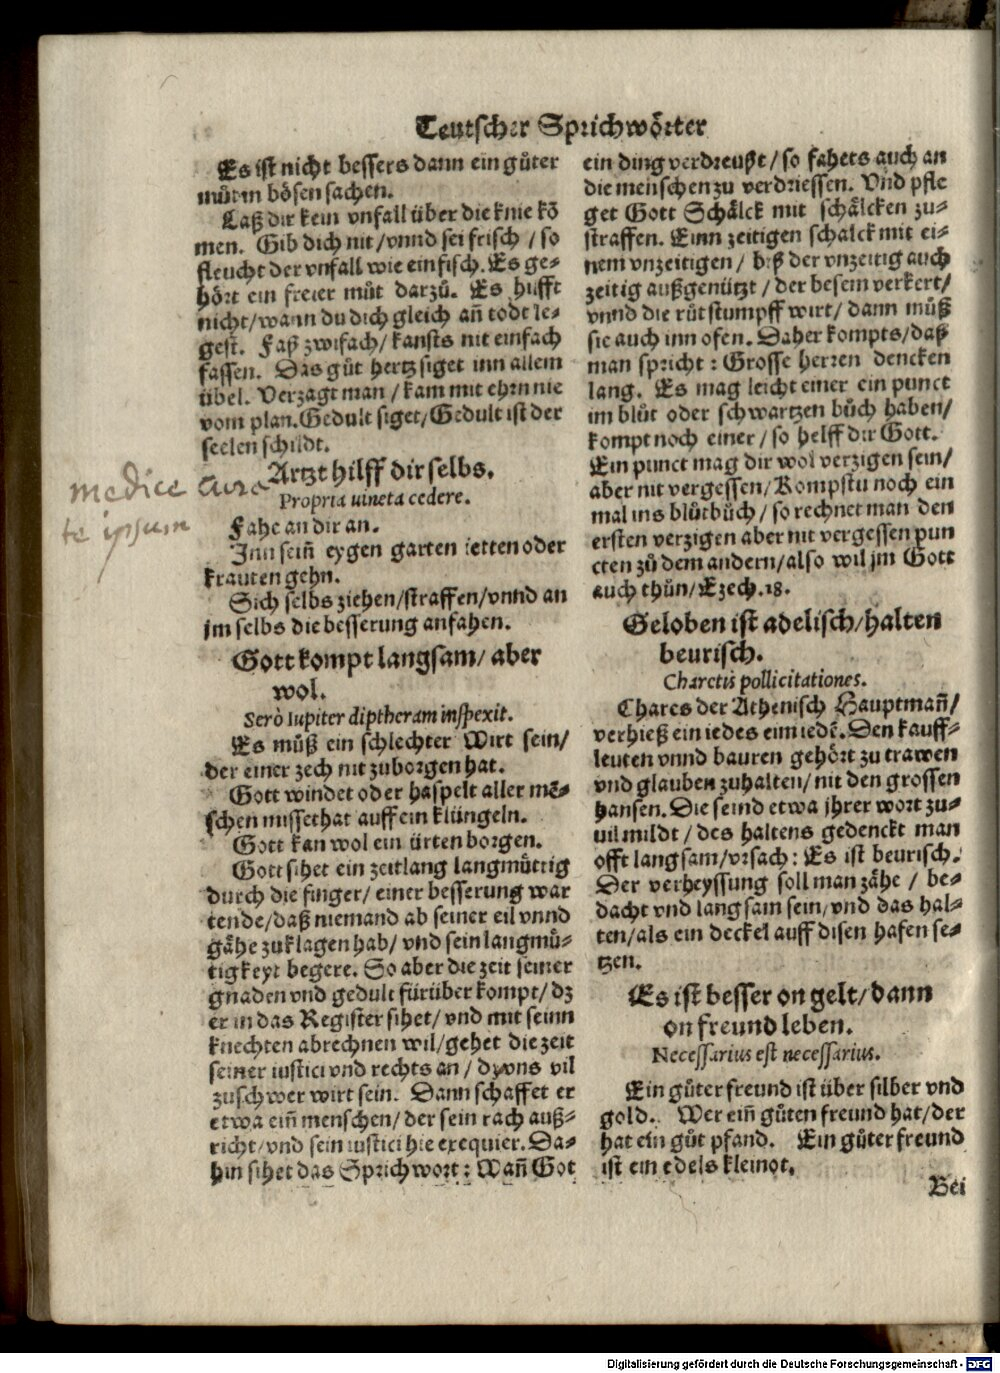 Teutscher Sprichwoͤrter
Es ist nicht bessers dann ein guͦter
muͦt in boͤsen sachen.
Laß dir kein vnfall uͤber die knie kõ
men. Gib dich nit / vnnd sei frisch / so
fleucht der vnfall wie ein fisch. Es ge-
hoͤrt ein freier muͦt darzuͦ. Es hilfft
nicht / wann du dich gleich añ todt le-
gest. Faß zwifach / kansts nit einfach
fassen. Das guͦt hertz siget inn allem
uͤbel. Verzagt man / kam mit ehrn nie
vom plan. Gedult siget / Gedult ist der
seelen schildt.
Artzt hilff dir selbs.
medice cura
te ipsum
Propria uineta cedere.
Fahe an dir an.
Inn seiñ eygen garten ietten oder
krauten gehn.
Sich selbs ziehen / straffen / vnnd an
jm selbs die besserung anfahen.
Gott kompt langsam / aber
wol.
Serò Iupiter diptheram inspexit.
Es muͦß ein schlechter Wirt sein /
der einer zech nit zuborgen hat.
Gott windet oder haspelt aller mẽ-
schen missethat auff ein kluͤngeln.
Gott kan wol ein uͤrten borgen.
Gott sihet ein zeitlang langmuͤttig
durch die finger / einer besserung war
tende / daß niemand ab seiner eil vnnd
gaͤhe zuklagen hab / vnd sein langmuͤ-
tigkeyt begere. So aber die zeit seiner
gnaden vnd gedult fuͤruͤber kompt / dz
er in das Register sihet / vnd mit seinn
knechten abrechnen wil / gehet die zeit
seiner iustici vnd rechts an / dz vns vil
zuschwer wirt sein. Dann schaffet er
etwa eiñ menschen / der sein rach auß-
richt / vnd sein iustici hie exequier. Da-
hin sihet das Sprichwort : Wañ Got
ein ding verdreußt / so fahets auch an
die menschen zu verdriessen. Vnd pfle
get Gott Schaͤlck mit schaͤlcken zu-
straffen. Einn zeitigen schalck mit ei-
nem vnzeitigen / biß der vnzeitig auch
zeitig außgenuͤtzt / der besem verkert /
vnnd die ruͦt stumpff wirt / dann muͦß
sie auch inn ofen. Daher kompts / daß
man spricht : Grosse herren dencken
lang. Es mag leicht einer ein punct
im bluͦt oder schwartzen buͦch haben /
kompt noch einer / so helff dir Gott.
Ein punct mag dir wol verzigen sein /
aber nit vergessen / Kompstu noch ein
mal ins bluͦtbuͦch / so rechnet man den
ersten verzigen aber nit vergessen pun
cten zuͦ dem andern / also wil jm Gott
auch thuͦn / Ezech. 18.
Geloben ist adelisch / halten
beurisch.
Charetis pollicitationes.
Chares der Athenisch Hauptmañ /
verhieß ein iedes eim iedẽ. Den kauff-
leuten vnnd bauren gehoͤrt zu trawen
vnd glauben zuhalten / nit den grossen
hansen. Die seind etwa jhrer wort zu-
uil mildt / des haltens gedenckt man
offt langsam / vrsach : Es ist beurisch.
Der verheyssung soll man zaͤhe / be-
dacht vnd langsam sein / vnd das hal-
ten / als ein deckel auff disen hafen se-
tzen.
Es ist besser on gelt / dann
on freund leben.
Necessarius est necessarius.
Ein guͦter freund ist uͤber silber vnd
gold. Wer eiñ guͦten freund hat / der
hat ein guͦt pfand. Ein guͦter freund
ist ein edels kleinot.
Bei
Digitalisierung gefördert durch die Deutsche Forschungsgemeinschaft - DFG